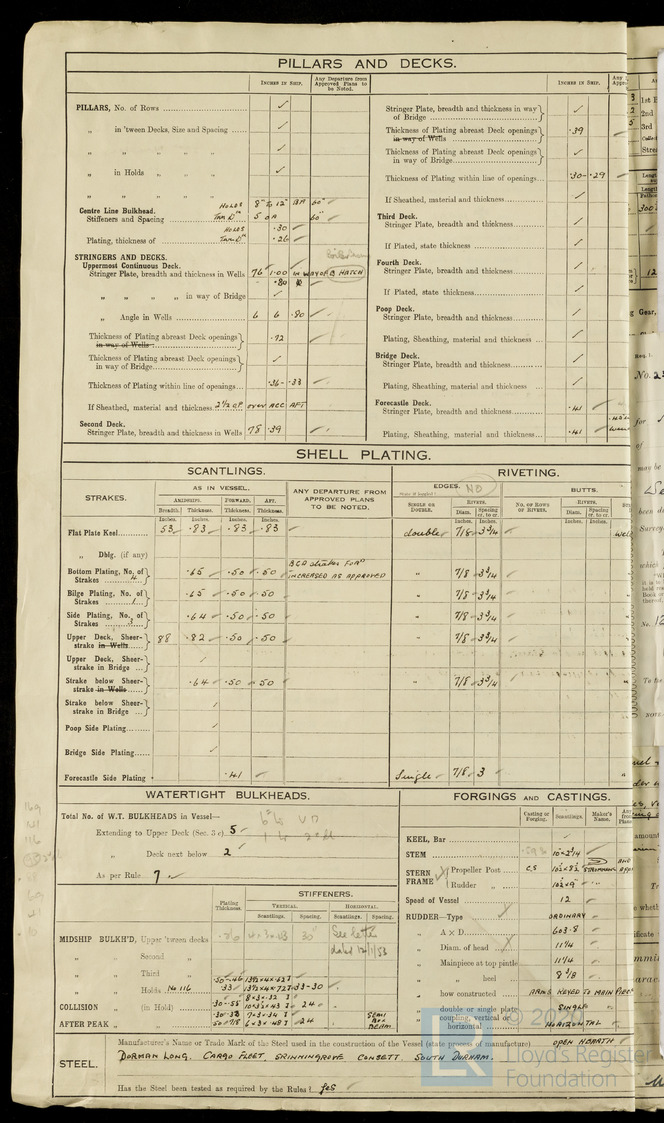 PILLARS AND DECKS.
INCHES IN SHIP.
Any Departure from Approved Plans to be Noted.
PILLARS, No. of Rows ✓
„ in 'tween Decks, Size and Spacing ✓
„ „ „ „ ✓
„ in Holds „ „ ✓
„ „ „ „
Centre Line Bulkhead.
Stiffeners and Spacing HOLDS 8" to 12" BA 60"
60"
Plating, thickness of HOLDS .30
.26
STRINGERS AND DECKS.
Uppermost Continuous Deck.
Stringer Plate, breadth and thickness in Wells 76 1.00 IN WAY OF B HATCH
.80
„ „ „ „ in way of Bridge ✓
„ Angle in Wells 6 6 .80
Thickness of Plating abreast Deck openings in way of Wells .72
Thickness of Plating abreast Deck openings in way of Bridge ✓
Thickness of Plating within line of openings .36 - .33
If Sheathed, material and thickness 2½ O.P. OVER ACC AFT
Second Deck.
Stringer Plate, breadth and thickness in Wells 78 .39
INCHES IN SHIP.
Stringer Plate, breadth and thickness in way of Bridge ✓
Thickness of Plating abreast Deck openings in way of Wells .39
Thickness of Plating abreast Deck openings in way of Bridge ✓
Thickness of Plating within line of openings .30 - .29
If Sheathed, material and thickness ✓
Third Deck.
Stringer Plate, breadth and thickness ✓
If Plated, state thickness ✓
Fourth Deck.
Stringer Plate, breadth and thickness ✓
If Plated, state thickness ✓
Poop Deck.
Stringer Plate, breadth and thickness ✓
Plating, Sheathing, material and thickness ✓
Bridge Deck.
Stringer Plate, breadth and thickness ✓
Plating, Sheathing, material and thickness ✓
Forecastle Deck.
Stringer Plate, breadth and thickness .41
Plating, Sheathing, material and thickness .41
SHELL PLATING.
SCANTLINGS.
RIVETING.
STRAKES.
AS IN VESSEL.
AMIDSHIPS.
FORWARD.
AFT.
Breadth. Thickness. Thickness. Thickness.
ANY DEPARTURE FROM APPROVED PLANS TO BE NOTED.
EDGES. NO
SINGLE OR DOUBLE.
RIVETS.
Diam. Spacing cr. to cr.
BUTTS.
NO. OF ROWS OF RIVETS.
RIVETS.
Diam. Spacing cr. to cr.
Inches. Inches. Inches. Inches. Inches. Inches. Inches. Inches.
Flat Plate Keel 53 .83 .83 .83 double 7/8 3¾
„ Dblg. (if any)
Bottom Plating, No. of Strakes 4 .65 .50 .50 BCD strakes FOR'D INCREASED AS APPROVED „ 7/8 3¾
Bilge Plating, No. of Strakes 1 .65 .50 .50 „ 7/8 3¾
Side Plating, No. of Strakes 3 .64 .50 .50 „ 7/8 3¾
Upper Deck, Sheerstrake in Wells 88 .82 .50 .50 „ 7/8 3¾
Upper Deck, Sheerstrake in Bridge ✓
Strake below Sheerstrake in Wells .64 .50 .50 „ 7/8 3¾
Strake below Sheerstrake in Bridge ✓
Poop Side Plating ✓
Bridge Side Plating ✓
Forecastle Side Plating .41 Single 7/8 3
WATERTIGHT BULKHEADS.
Total No. of W.T. BULKHEADS in Vessel—
Extending to Upper Deck (Sec. 3 c) 5
„ Deck next below 2
As per Rule 7
STIFFENERS.
Plating Thickness.
VERTICAL.
HORIZONTAL.
Scantlings. Spacing. Scantlings. Spacing.
MIDSHIP BULKH'D, Upper 'tween decks .26 30" See letter dated 12/1/53
„ „ Second „
„ „ Third „
„ „ Holds No 116
COLLISION „ (in Hold) 24
AFTER PEAK „ „ 24 SEMI BOX BEAM
FORGINGS AND CASTINGS.
Casting or Forging. Scantlings. Maker's Name.
KEEL, Bar ✓
STEM
STERN FRAME { Propeller Post C.S
Rudder „
Speed of Vessel 12
RUDDER—Type ORDINARY
„ A x D 603.8
„ Diam. of head 11¼
„ Mainpiece at top pintle 11¼
„ „ heel 8 3/8
„ how constructed ARMS KEYED TO MAIN PIECE
„ double or single plate SINGLE
„ coupling, vertical or horizontal HORIZONTAL
STEEL.
Manufacturer's Name or Trade Mark of the Steel used in the construction of the Vessel (state process of manufacture) OPEN HEARTH
DORMAN LONG. CARGO FLEET. SKINNINGROVE CONSETT. SOUTH DURHAM.
Has the Steel been tested as required by the Rules? Yes
Lloyd's Register
Foundation